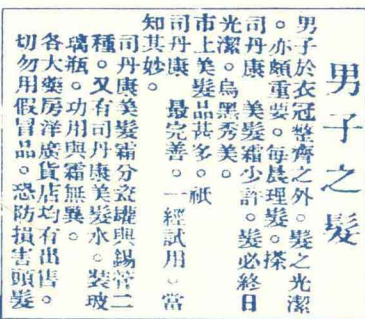 男子之髮
男子於衣冠整齊之外。髮之光潔
。亦頗重要。每晨理髮。搽
司丹康 美髮霜少許。髮必終日
光潔。烏黑秀美。
市上美髮品甚多。祇
司丹康 最完善。一經試用。當
知其妙。
司丹康美髮霜分瓷罐與錫管二
種。又有司丹康美髮水。裝玻
璃瓶。功用與霜無異。
各大藥房洋廣貨店均有出售。
切勿用假冒品。恐防損害頭髮